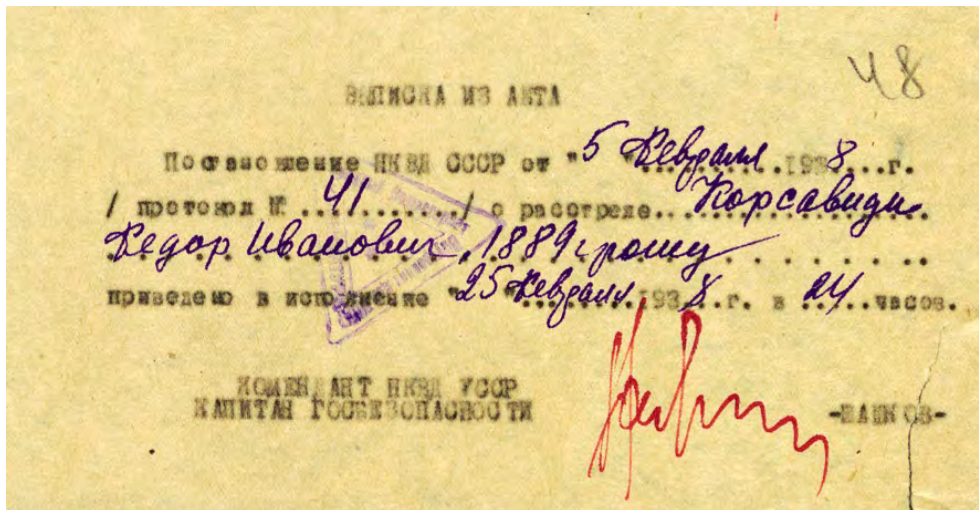 48
ВЫПИСКА ИЗ АКТА
Постановление НКВД СССР от "5 "февраля..193 8...г.
/ протокол № ...41......../ о расстреле..Корсавиди
Федор Иванович, 1889 г. рожд
приведено в исполнение "25 "февраля.193 8.г. в 24 часов.
КОМЕНДАНТ НКВД УССР
КАПИТАН ГОСБЕЗОПАСНОСТИ
-ШАШКОВ-